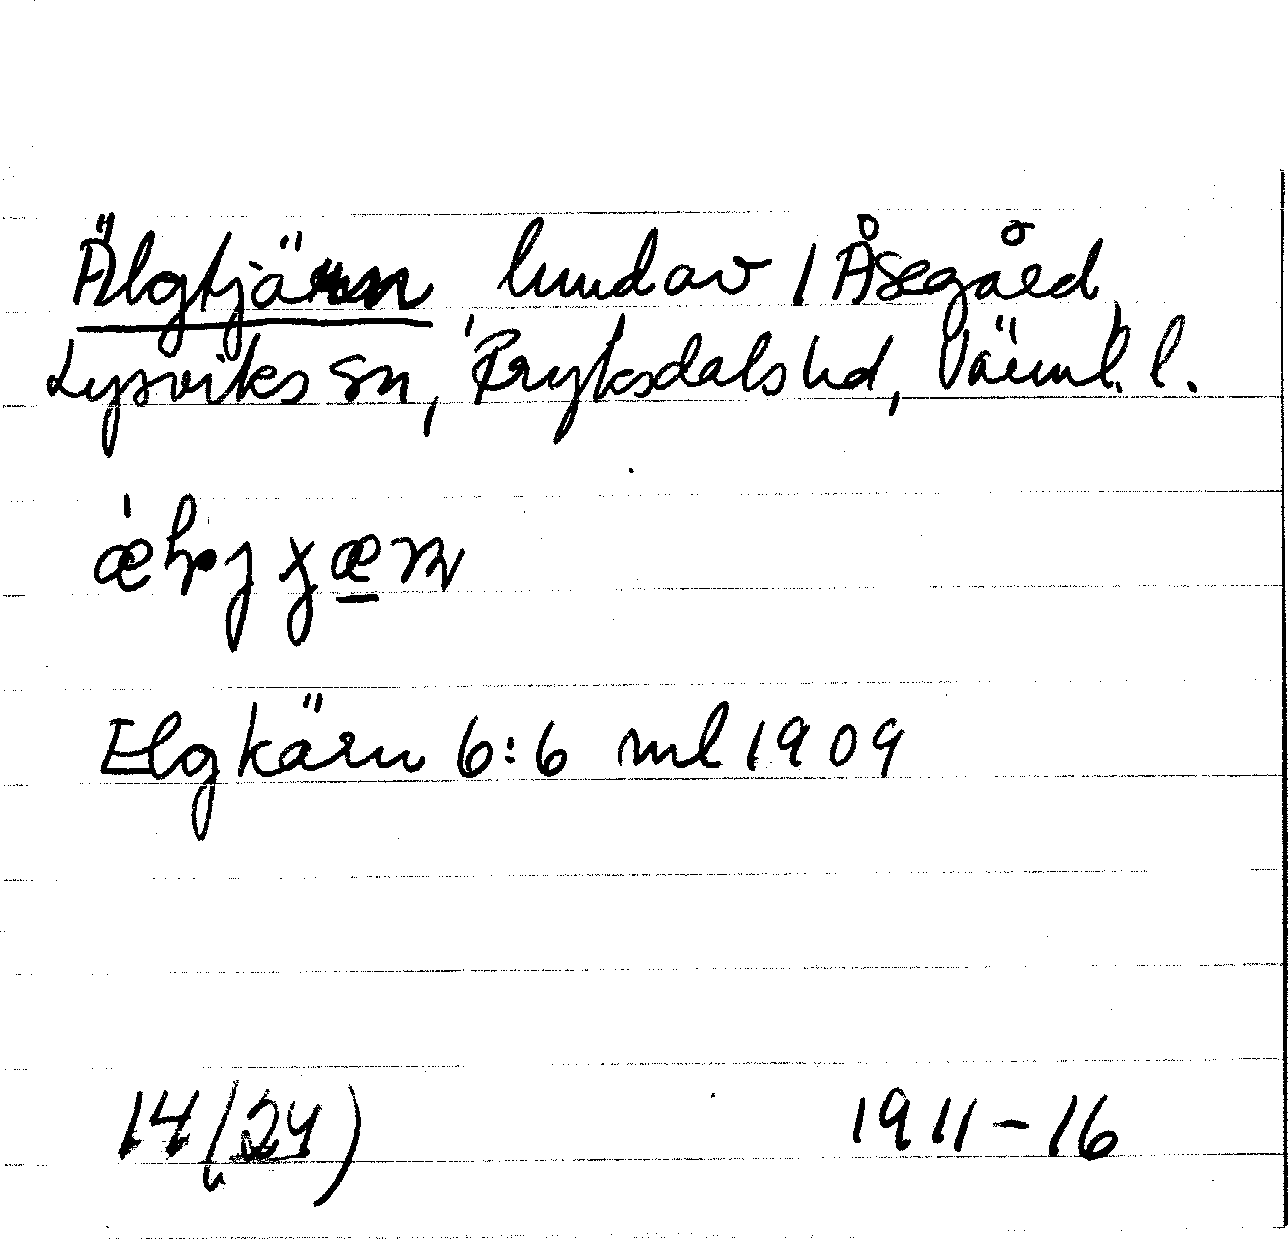 Älgtjärn hmdav 1 Åsegård,
Lysviks sn, Fryksdals hd, Värml. l.
Elgkärn 6:6 ml 1909
14 (24) 1911-16